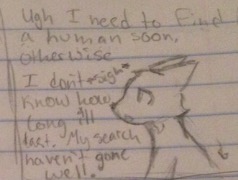 Ugh I need to find
a human soon,
otherwise
I dont *sigh*
know how
long Ill
last. My search
haven't gone
well.